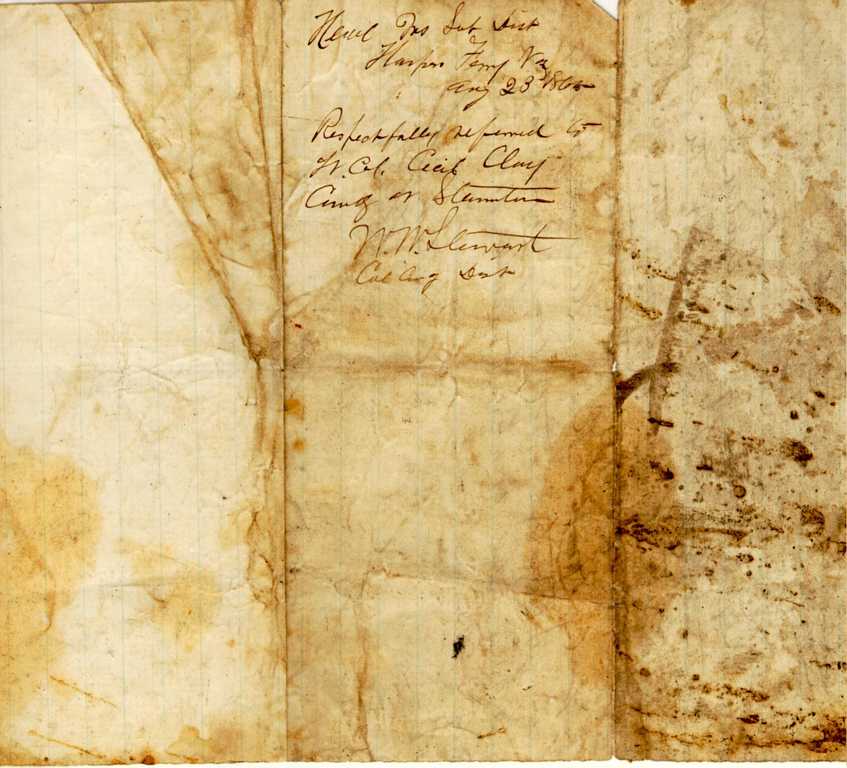 Head Qrs Sub Dist
Harpers Ferry Va
Aug 23d 1865
Respectfully referred to
Lt. Col. Cecil Clay
Comdg at Staunton
W. W. Stewart
Col Comdg Dist